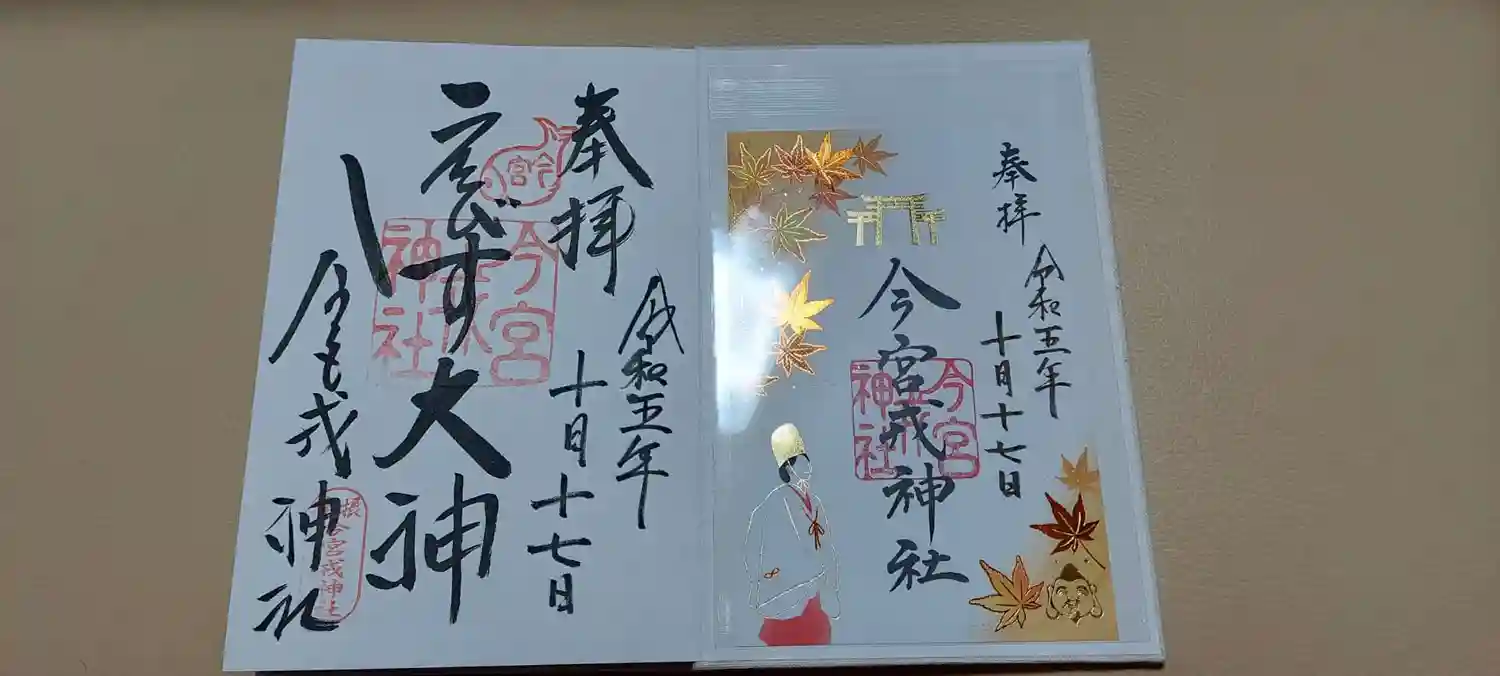 奉拝
令和五年
十月十七日
今宮戎神社
今宮
神社
奉拝
令和五年
十月十七日
今宮
ゑびす大神
今宮
神社
戎神社
今宮戎神社